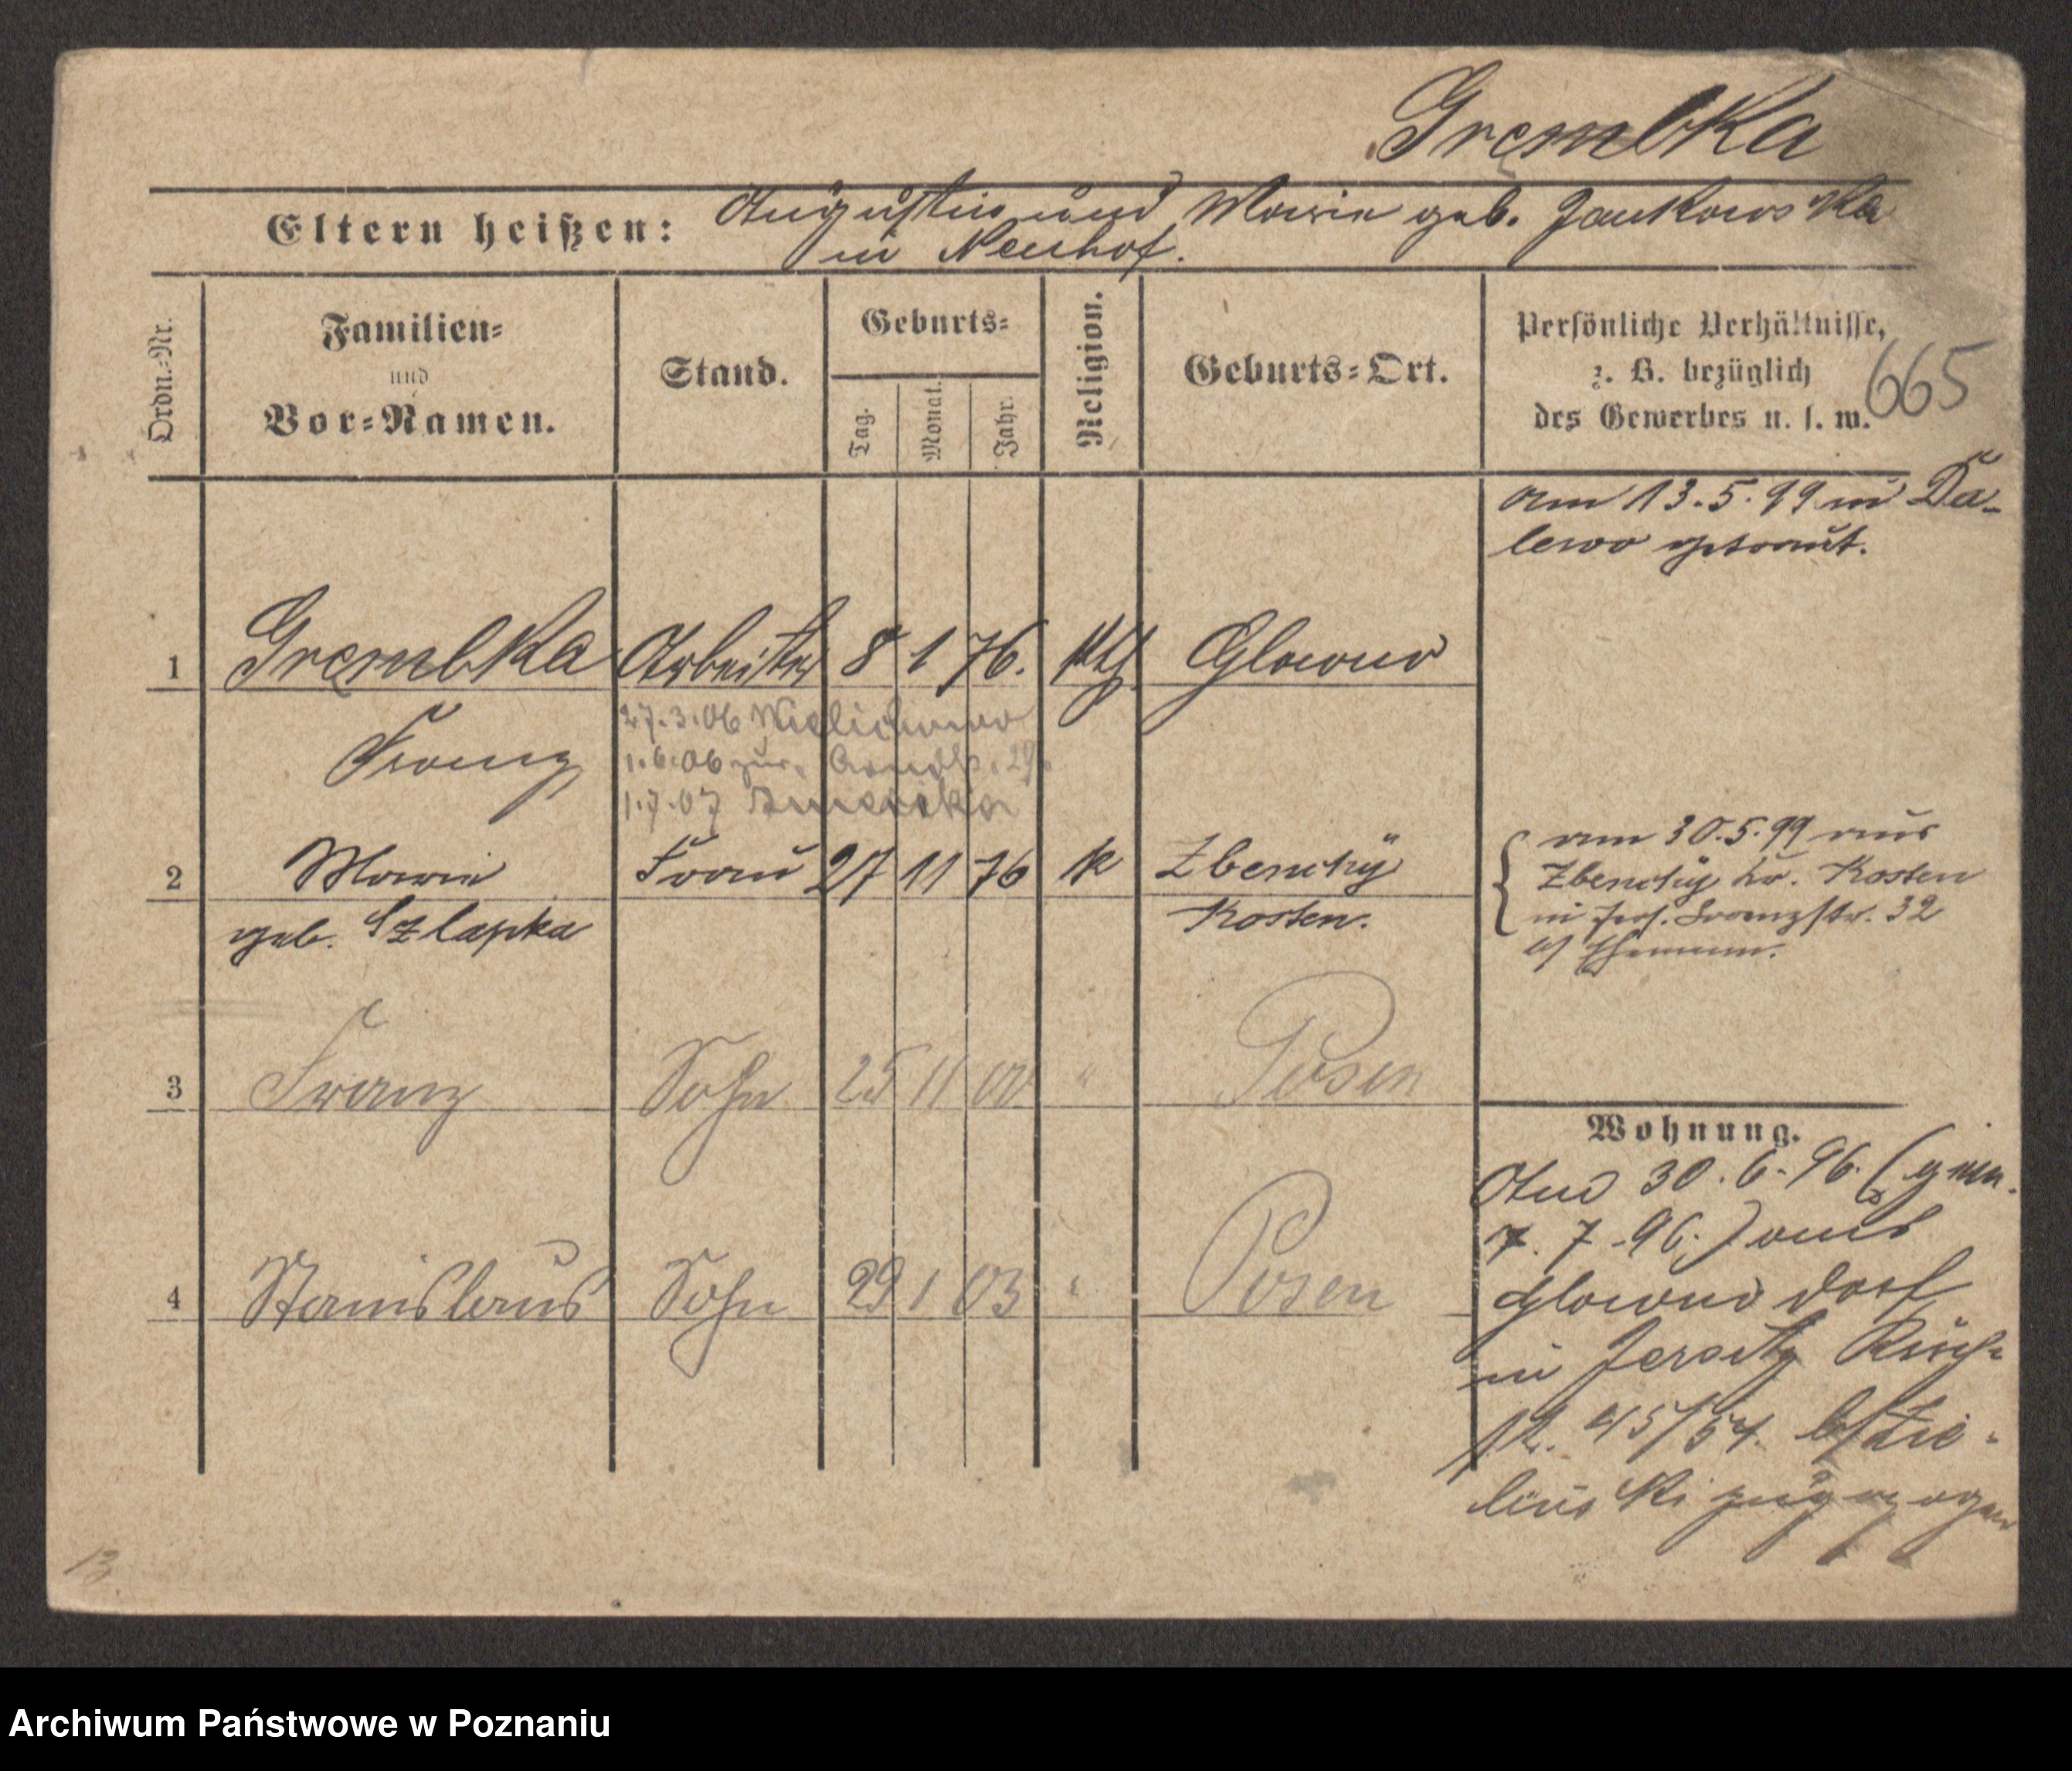 Grembka
Eltern heißen: Augustin und Marie geb. Jankowska
in Neuhof.
Ordn.-Nr.
Familien-
und
Vor-Namen.
Stand.
Geburts-
Tag.
Monat.
Jahr.
Religion.
Geburts-Ort.
Persönliche Verhältnisse,
z. B. bezüglich
des Gewerbes u. s. w.
665
am 13.5.99 in Da-
lewo getraut.
1 Grembka Arbeiter 8 1 76. kth Glowno
Franz
27.3.06
1.6.06 zur.
1.7.07 Amerika
2 Marie Frau 27 11 76 k Zbenchy
geb. Szlapka Kosten.
am 30.5.99 aus
Zbenchy Kr. Kosten
in Jers. Franzstr. 32
b/ Ehemann.
3 Franz Sohn 25 11 00 " Posen
4 Stanislaus Sohn 29 1 03 " Posen
Wohnung.
Am 30.6.96. (gem.
7.7.96.) aus
Glowno Dorf
in Jersitz
45/54. b/ Zie-
linski zugezogen
13
Archiwum Państwowe w Poznaniu